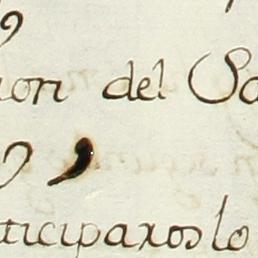 ion del Sa
ticiparos lo